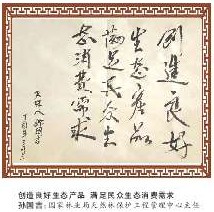 创造良好
生态产品
满足民众生
态消费需求
创造良好生态产品 满足民众生态消费需求
孙国吉:国家林业局天然林保护工程管理中心主任